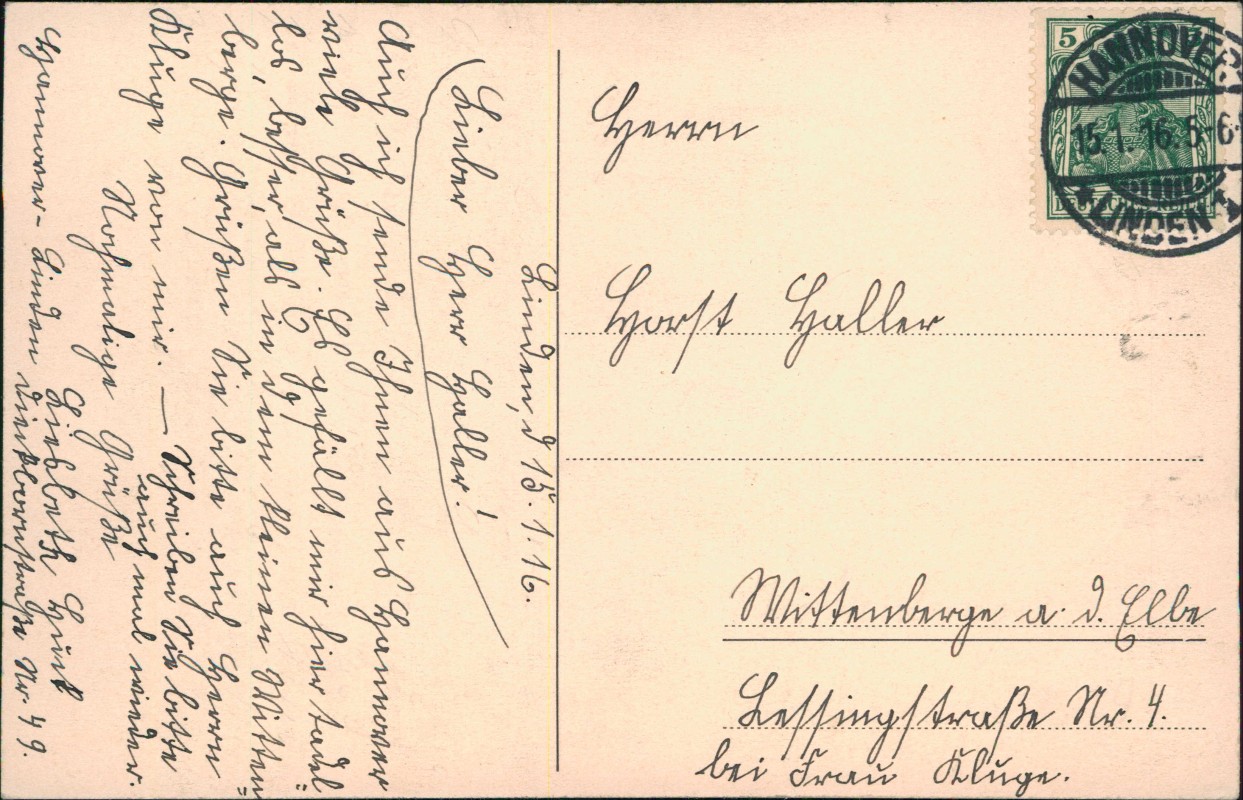 Linden, d 15. 1. 16.
Lieber Herr Haller!
Auch ich sende Ihnen aus Hannover
viele Grüße. Es gefällt mir hier tadel=
los, besser, als in dem kleinen Witten=
berge. Grüßen Sie bitte auch Herrn
Kluge von mir. — Schreiben Sie bitte
auch mal wieder.
Nochmalige Grüße
Liesbeth
Hannover-Linden Dieckbornstraße Nr. 49.
5
HANNOVER
15.1.16.5-6
LINDEN
Herrn
Horst Haller
Wittenberge a. d. Elbe
Lessingstraße Nr. 4.
bei Frau Kluge.